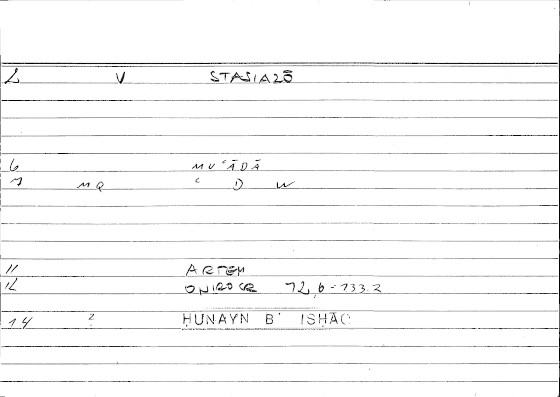 2 V STASIAZŌ
6 MUʿĀDĀ
7 MQ ʿ D W
11 ARTEM
12 ONIROCR 72,6-133.2
14 2 ḤUNAYN B' ISḤĀQ